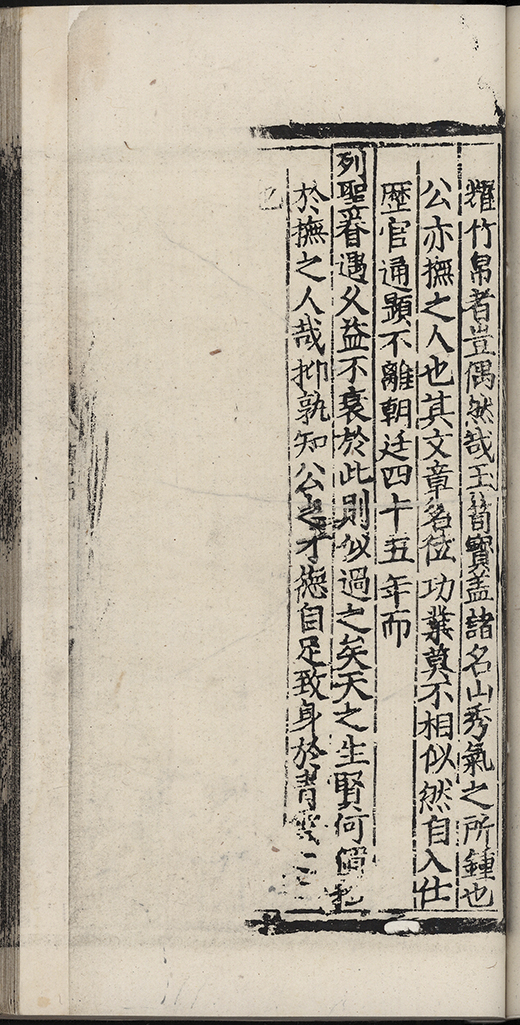 耀竹帛者豈偶然哉玉笥寶盖諸名山秀氣之所鍾也
公亦撫之人也其文章名位功業莫不相似然自入仕
歷官通顯不離朝廷四十五年而
列聖眷遇久益不衰於此則似過之矣天之生賢何偏
於撫之人哉抑孰知公之才德自足致身於青雲